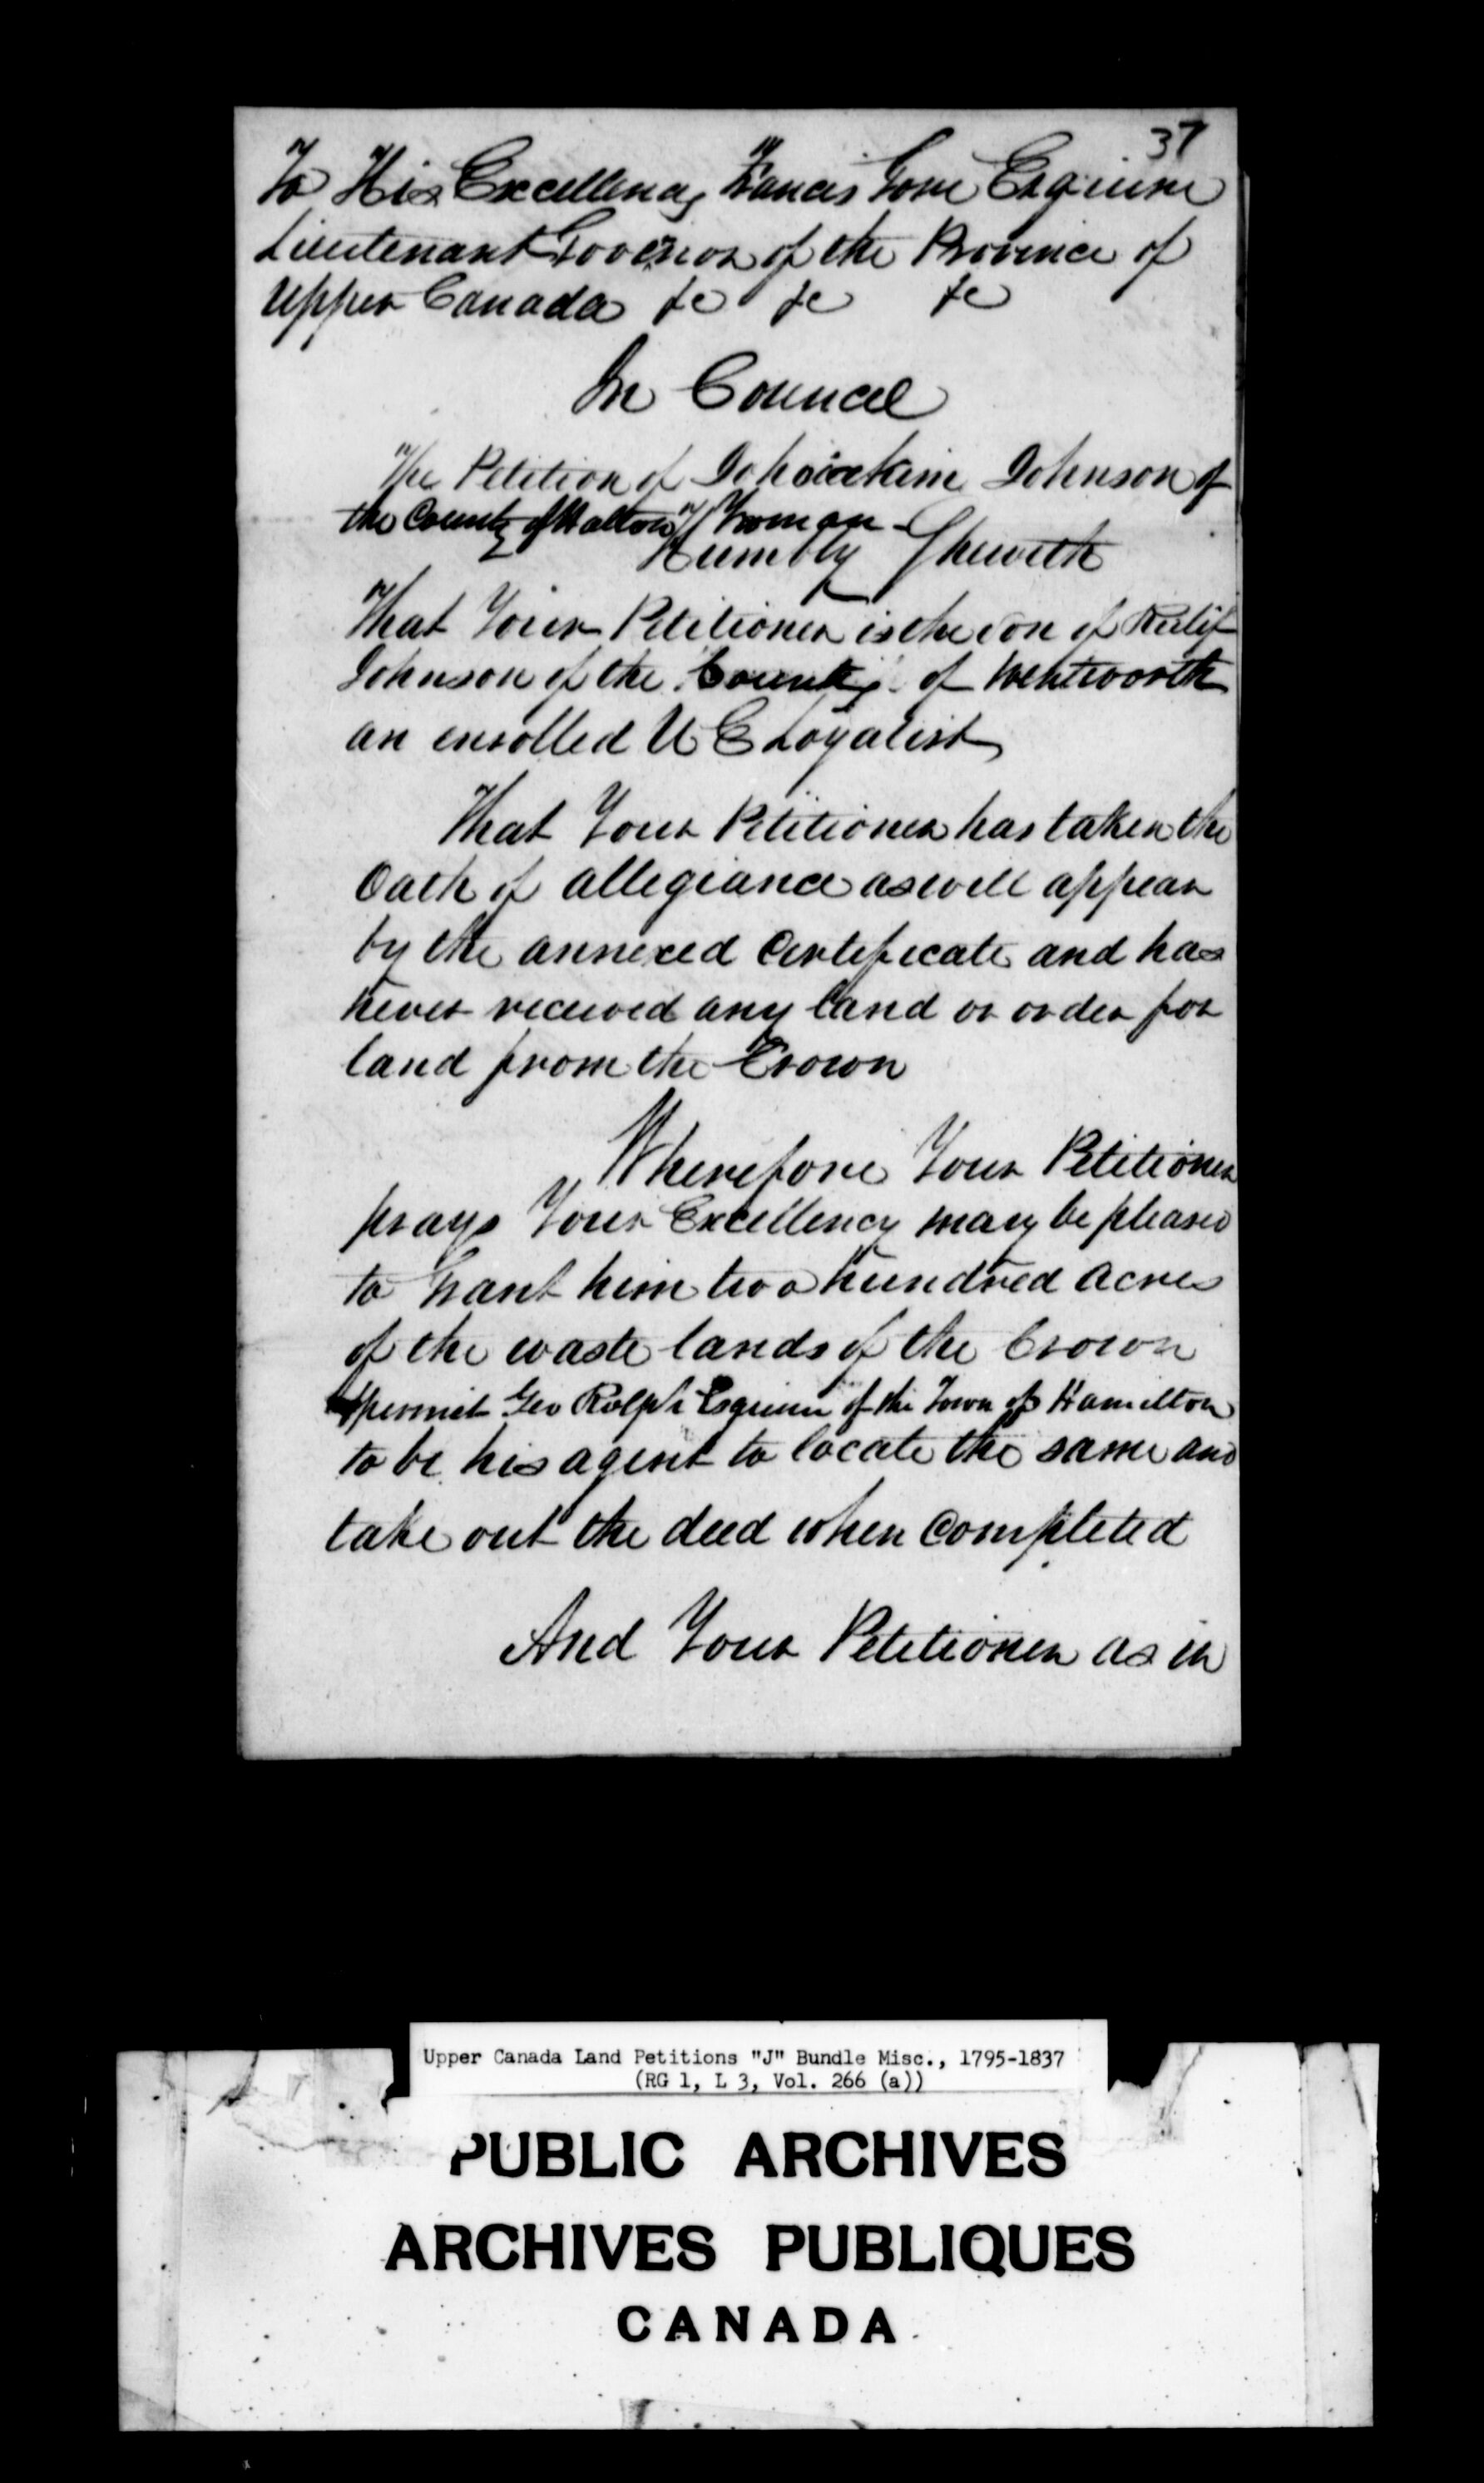 37
To His Excellency Francis Gore Esquire
Lieutenant Govenor of the Province of
Upper Canada &c &c &c
In Council
The Petition of Johnson of
the County of Halton Yeoman
Humbly Sheweth
That Your Petitioner is the son of Rulif
Johnson of the County of Wentworth
an enrolled U E Loyalist
That Your Petitioner has taken the
Oath of allegiance as will appear
by the annexed Certificate and has
never received any land or order for
land from the Crown
Wherefore Your Petitioner
prays Your Excellency may be pleased
to Grant him two hundred acres
of the waste lands of the Crown
& permit Geo Rolph Esquire of the Town of Hamilton
to be his agent to locate the same and
take out the deed when Completed
And Your Petitioner as in
Upper Canada Land Petitions "J" Bundle Misc., 1795-1837
(RG 1, L 3, Vol. 266 (a))
PUBLIC ARCHIVES
ARCHIVES PUBLIQUES
CANADA